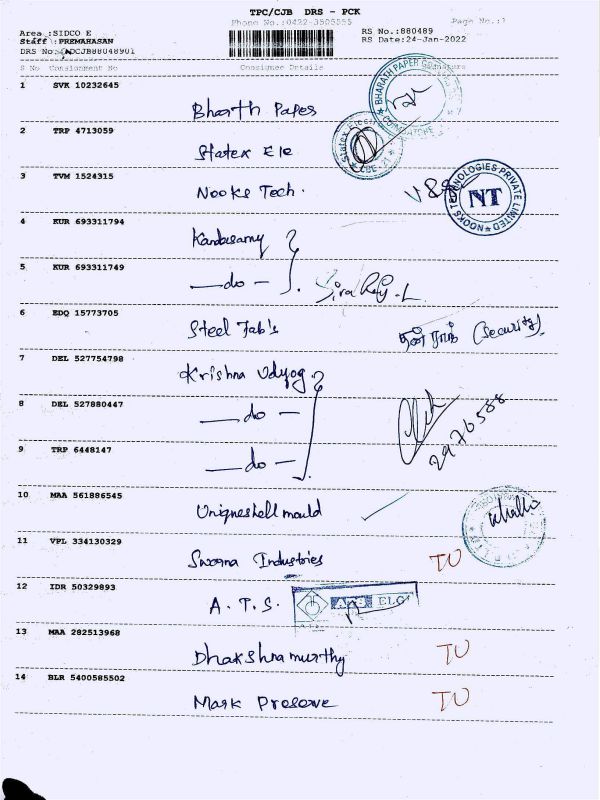 TPC/CJB DRS - PCK
Phone No.:0422-3505555
Page No.:1
Area :SIDCO E
Staff :PREMAHASAN
DRS No:
RS No.:880489
RS Date:24-Jan-2022
S No Consignment No Consignee Details Signature
1 SVK 10232645
Bharth Papes
BHARATH PAPER
COIMBATORE
2 TRP 4713059
Statex Ele
3 TVM 1524315
Nooks Tech.
NOOKS TECHNOLOGIES PRIVATE LIMITED
NT
4 KUR 693311794
Kandasamy
5 KUR 693311749
— do —
6 EDQ 15773705
Steel Fab's
(Security)
7 DEL 527754798
Krishna Udyog
8 DEL 527880447
— do —
2976588
9 TRP 6448147
— do —
10 MAA 561886545
Uniqneshell mould
11 VPL 334130329
Sworna Industries
TU
12 IDR 50329893
A. T. S.
ELGI
13 MAA 282513968
Dhakshnamurthy
TU
14 BLR 5400585502
Mark Preserve
TU